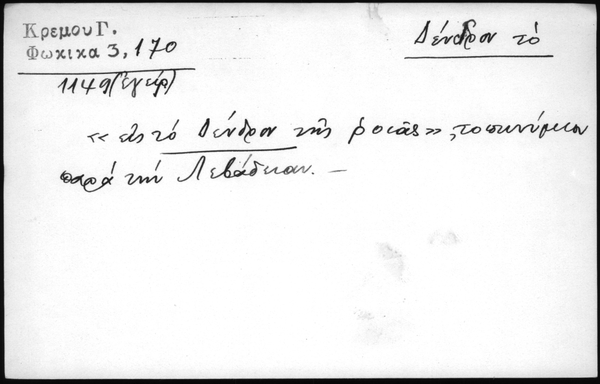 Κρεμου Γ.
Φωκικα 3, 170
Δένδρον τό
1149 (ἔγγρ)
« εἰς τό Δένδρον τῆς ῥοιᾶς », τοπωνύμιον
παρά τήν Λεβάδειαν. —